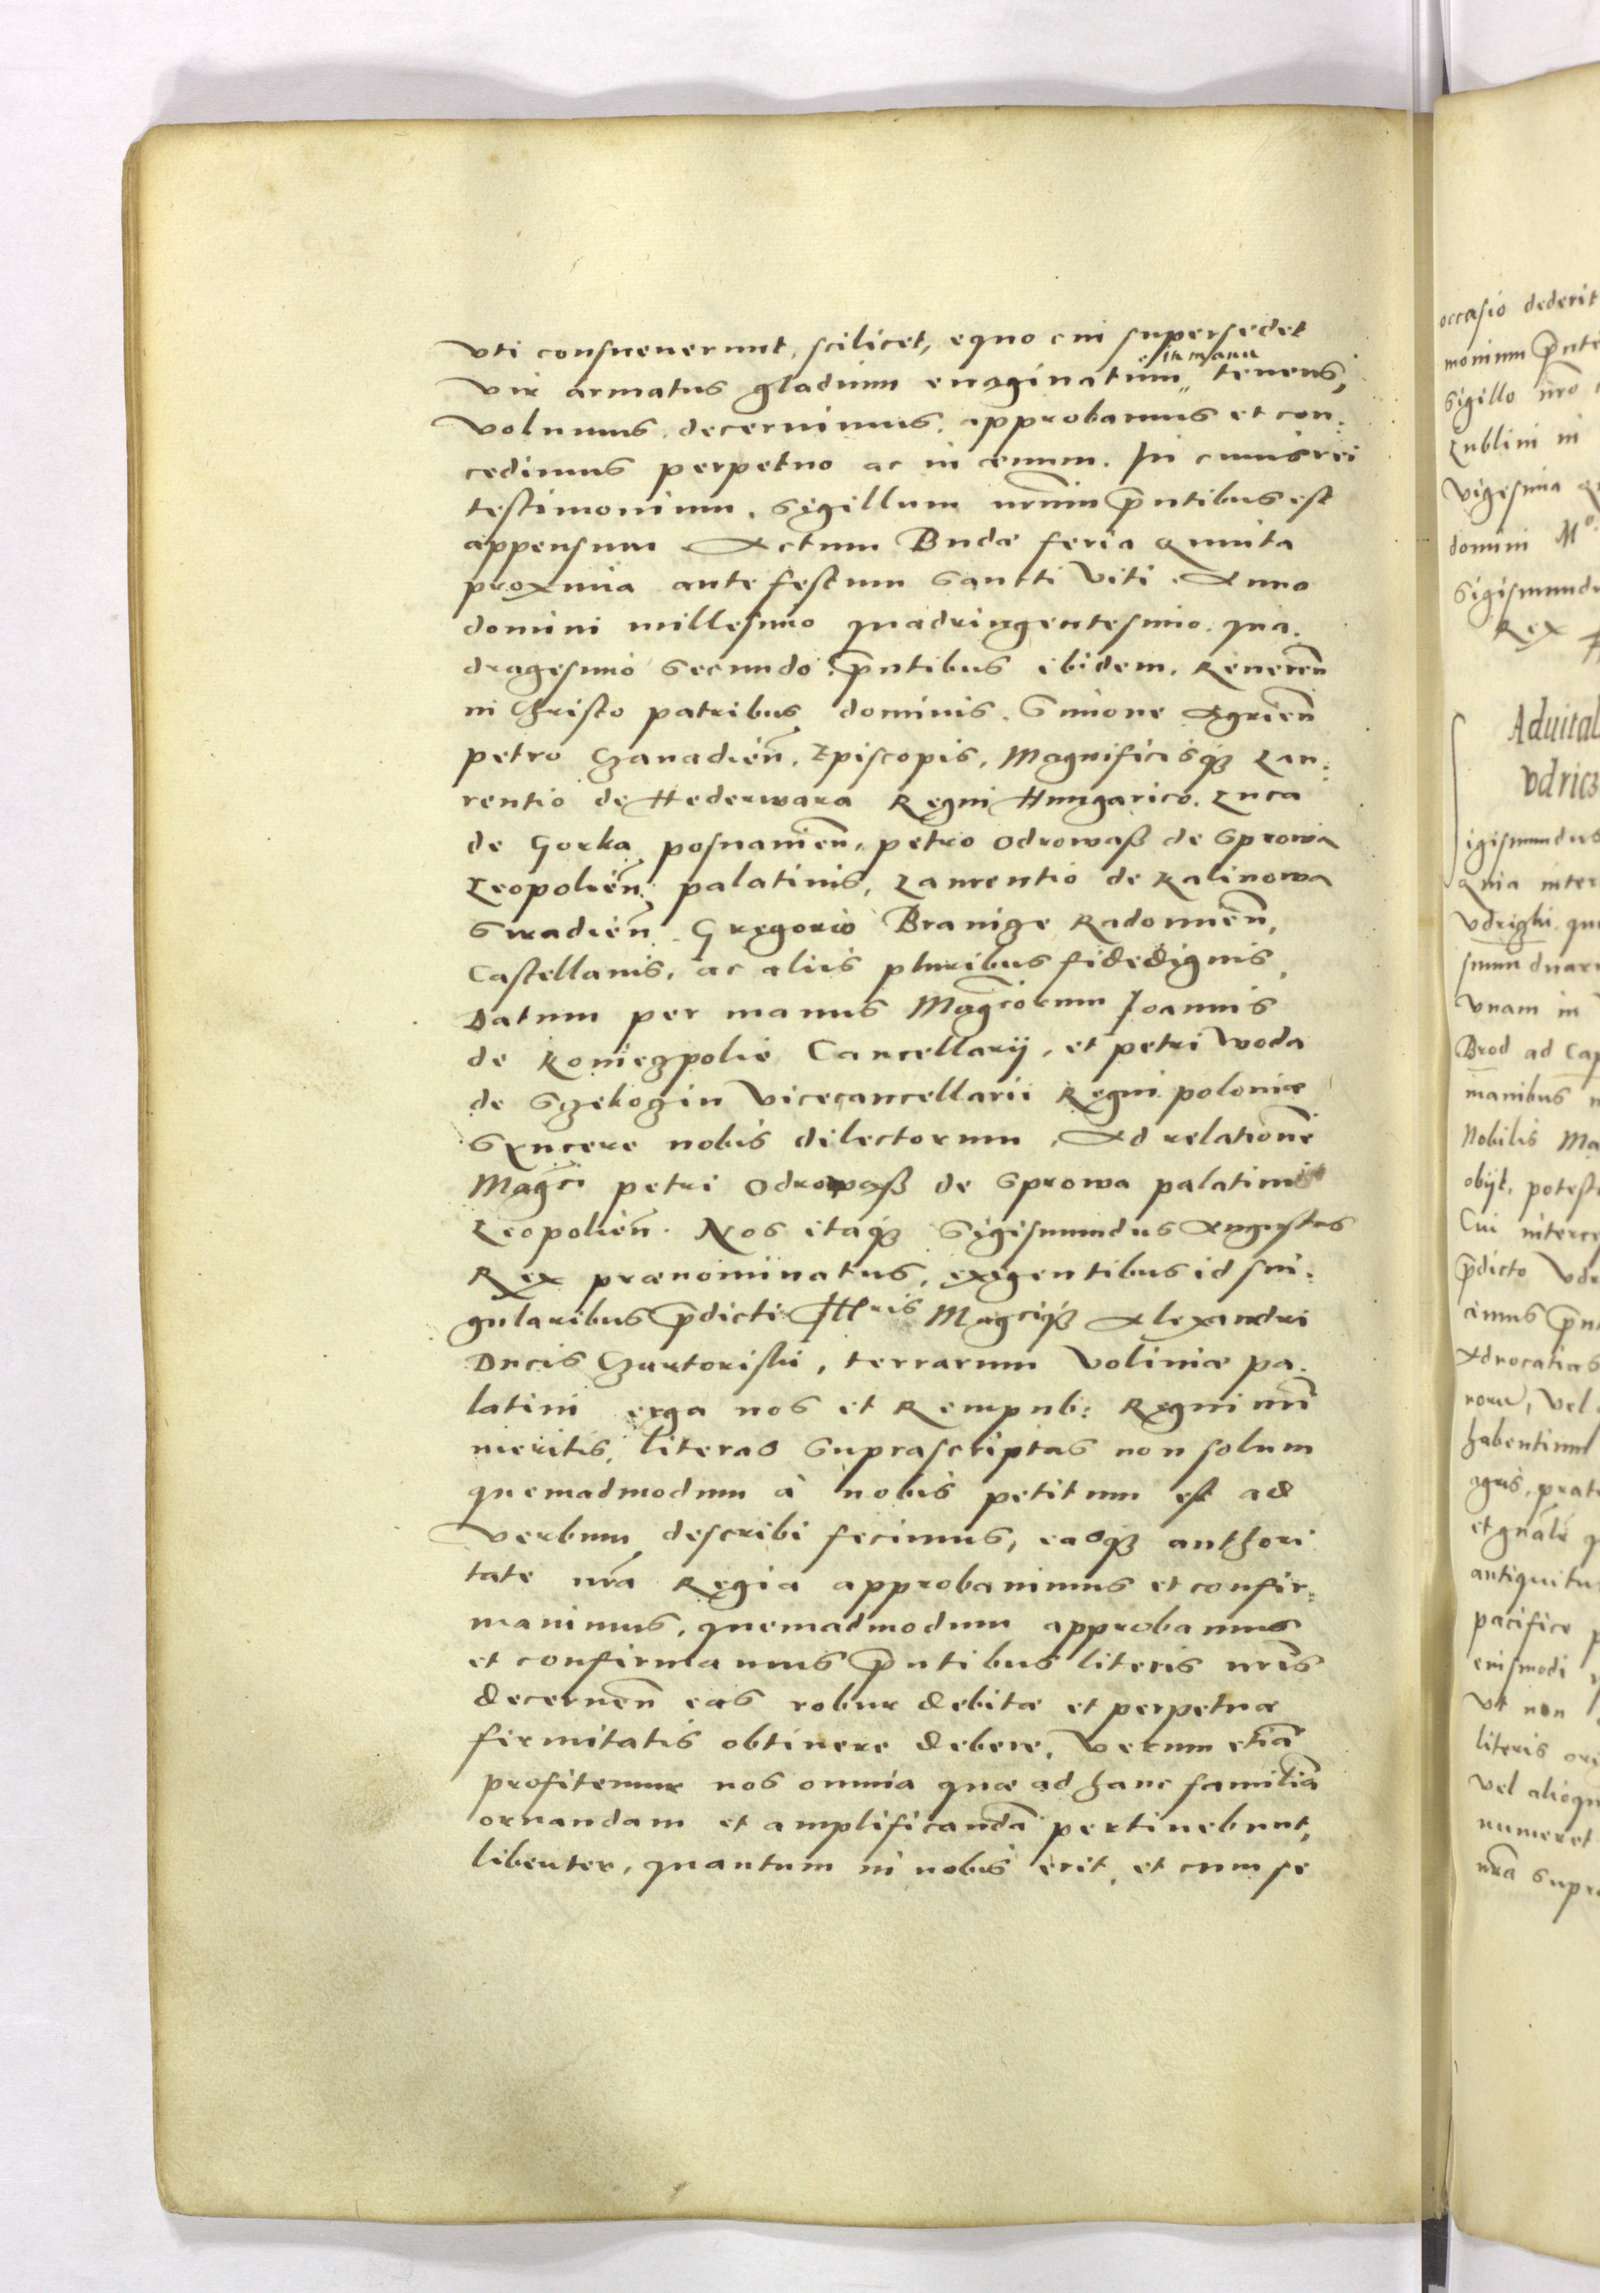 vti consueuerunt, scilicet, equo cui supersedet
vir armatus gladium euaginatum in manu tenens,
volumus. decernimus. approbamus et con:
cedimus perpetuo ac in æuum. In cuius rei
testimonium. sigillum nrum pntibus est
appensum Actum Budæ feria quinta
proxima ante festum Sancti Viti. Anno
domini millesimo quadringentesimo. qua.
dragesimo secundo. pntibus ibidem. Reueren
in Christo patribus dominis. Simone Agrien
petro Czanadien. Episcopis. Magnificisq3 Lau:
rentio de Hederwara Regni Hungarico. Luca
de Gorka posnanien. petro Odrowaß de Sprowa
Leopolien palatinis, Laurentio de Kalinowa
Siradien. Gregorio Branize Radomien,
Castellanis. ac aliis pluribus fidedignis,
Datum per manus Magcorum Joannis
de Koniezpolie Cancellarij, et petri Woda
de Szekozin vicecancellarii Regni poloniæ
Syncere nobis dilectorum. Ad relationem
Magci petri Odrowaß de Sprowa palatini
Leopolien. Nos itaq3 Sigismundus Augustus
Rex prænominatus, exigentibus id sin:
gularibus pdicti Illris Magciq3 Alexandri
Ducis Czartoriski, terrarum Voliniæ pa.
latini erga nos et Rempub: Regni nri
meritis, literas suprascriptas non solum
quemadmodum à nobis petitum est ad
verbum describi fecimus, easq3 authori
tate nra Regia approbauimus et confir:
mauimus, quemadmodum approbamus
et confirmamus pntibus literis nris
decernen eas robur debitæ et perpetuæ
firmitatis obtinere debere, verum etiã
profitemur nos omnia quæ ad hanc familiã
ornandam et amplificandã pertinebunt,
libenter, quantum in nobis erit, et cum se
occasio dederit
sigillo nro
Lublini in
vigesima
domini Mo.
Sigismundu
Rex
Aduital
Vdricz
igismundus
quia inter
vnam in
Brod ad Cap
manibus
Nobilis Ma
obijt. potest
Cui interce
pdicto Vdr
Aduocatias
vel
habentium
agris, prat
antiquitu
pacifice p
eiusmodi
Vt non
literis ori
vel alioqu
numeret
nra supra